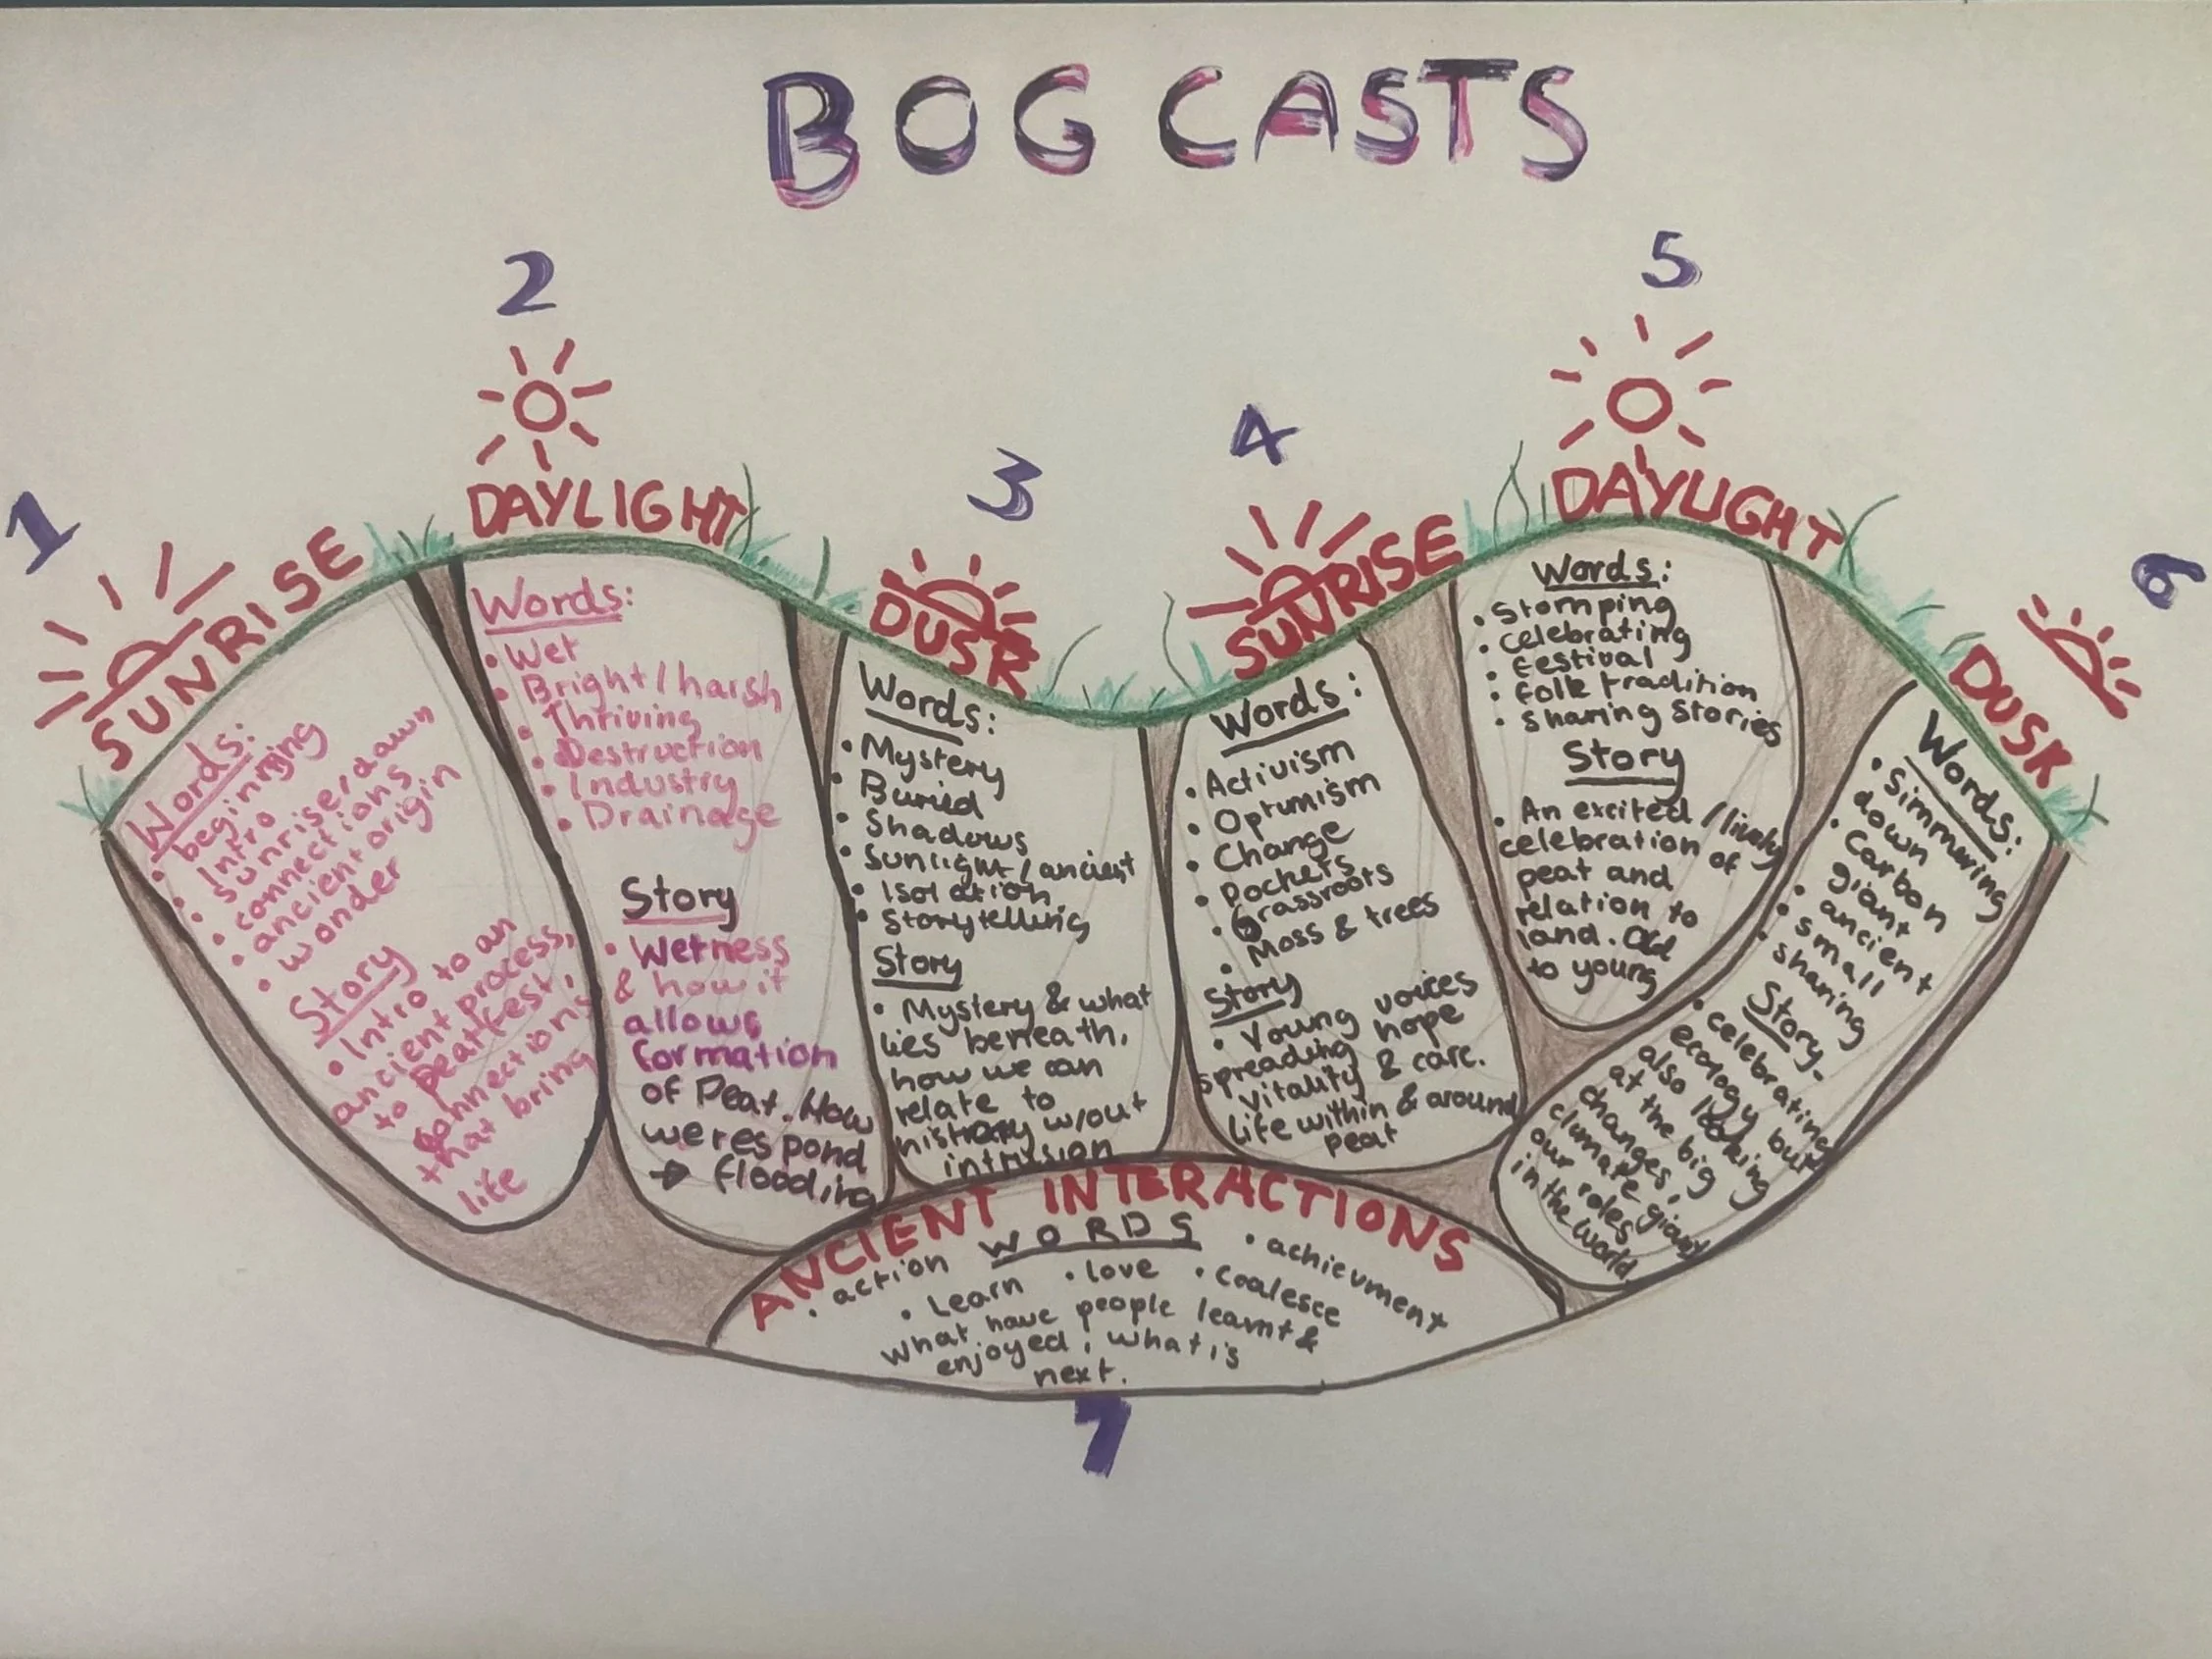 BOG CASTS
1
SUNRISE
Words:
• beginning
• Intro
• sunrise/dawn
• connections
• ancient origin
• wonder
Story
• Intro to an
ancient process,
to peatfest,
connections
that bring
life
2
DAYLIGHT
Words:
• Wet
• Bright/harsh
• Thriving
• Destruction
• Industry
• Drainage
Story
• Wetness
& how it
allows
formation
of Peat. How
we respond
→ flooding
3
DUSK
Words:
• Mystery
• Buried
• Shadows
• Sunlight/ancient
• Isolation
• Storytelling
Story
• Mystery & what
lies beneath,
how we can
relate to
history w/out
intrusion
4
SUNRISE
Words:
• Activism
• Optimism
• Change
• Pockets
• Grassroots
• Moss & trees
Story
• Young voices
spreading hope
vitality & care.
Life within & around
peat
5
DAYLIGHT
Words:
• Stomping
• celebrating
• Festival
• folk tradition
• sharing stories
Story
• An excited/lively
celebration of
peat and
relation to
land. Old
to young
6
DUSK
Words:
• Simmering
down
• Carbon
giant
• ancient
• small
• sharing
Story-
• celebrating
ecology but
also looking
at the big
changes,
climate giant
our roles
in the world
ANCIENT INTERACTIONS
WORDS
• action
• Learn • love • coalesce • achievment
what have people learnt &
enjoyed, what is
next.
7